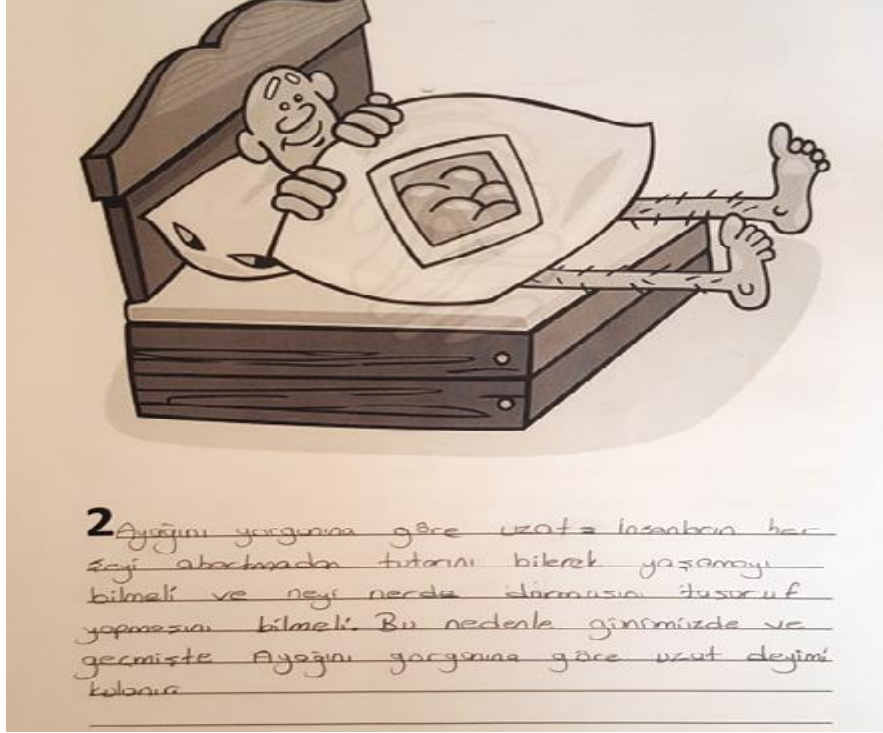 2 Ayağını yorgunına göre uzat = İnsanların her
şeyi abartmadan tutarını bilerek yaşamayı
bilmeli ve neyi nerde durmasını tusuruf
yapmasını bilmeli. Bu nedenle günümüzde ve
geçmişte Ayağını yorganına göre uzat deyimi
kulanır